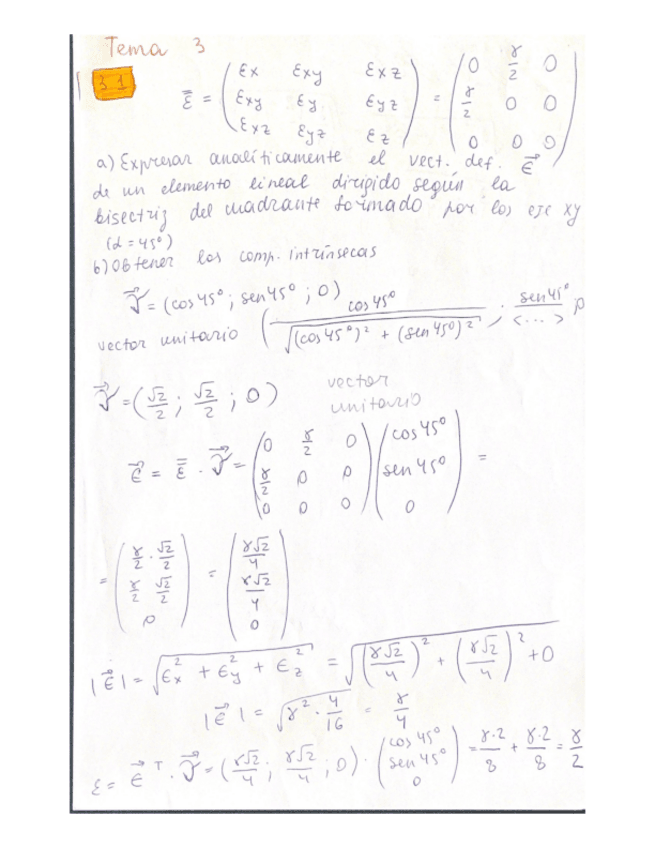 Tema 3
3.1
ε̿ = ( εx εxy εxz ; εxy εy εyz ; εxz εyz εz ) = ( 0 γ/2 0 ; γ/2 0 0 ; 0 0 0 )
a) Expresar analíticamente el vect. def. ε⃗
de un elemento lineal dirigido según la
bisectriz del cuadrante formado por los eje xy
(α = 45°)
b) Obtener las comp. intrínsecas
ν⃗ = (cos 45° ; sen 45° ; 0)
vector unitario ( cos 45° / √((cos 45°)² + (sen 45°)²) ; sen 45° / <...> ; 0
ν⃗ = ( √2/2 ; √2/2 ; 0 )
vector
unitario
ε⃗ = ε̿ · ν⃗ = ( 0 γ/2 0 ; γ/2 0 0 ; 0 0 0 ) ( cos 45° ; sen 45° ; 0 ) =
= ( γ/2 · √2/2 ; γ/2 √2/2 ; 0 ) = ( γ√2/4 ; γ√2/4 ; 0 )
|ε⃗| = √(εx² + εy² + εz²) = √((γ√2/4)² + (γ√2/4)² + 0)
|ε⃗| = √(γ² · 4/16) = γ/4
ε = ε⃗ᵀ · ν⃗ = ( γ√2/4 ; γ√2/4 ; 0 ) · ( cos 45° ; sen 45° ; 0 ) = γ·2/8 + γ·2/8 = γ/2